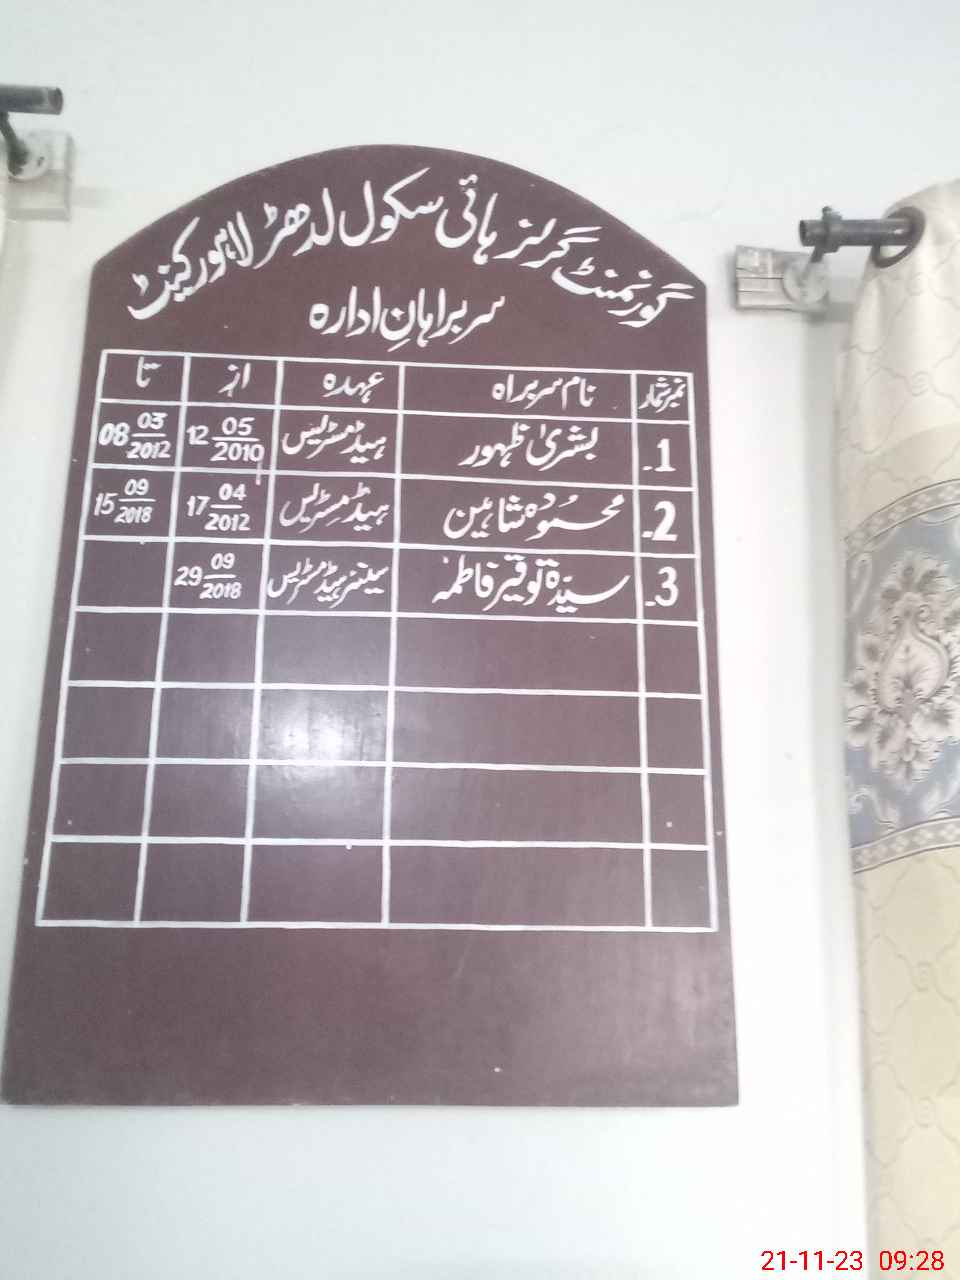 گورنمنٹ گرلز ہائی سکول لدھڑ لاہور کینٹ
سربراہانِ ادارہ
نمبر شمار نام سربراہ عہدہ از تا
1۔ بشریٰ ظہور ہیڈ مسٹریس 12 05/2010 08 03/2012
2۔ محمودہ شاہین ہیڈ مسٹریس 17 04/2012 15 09/2018
3۔ سیّدۃ توقیر فاطمہ سینئر ہیڈ مسٹریس 29 09/2018
21-11-23 09:28